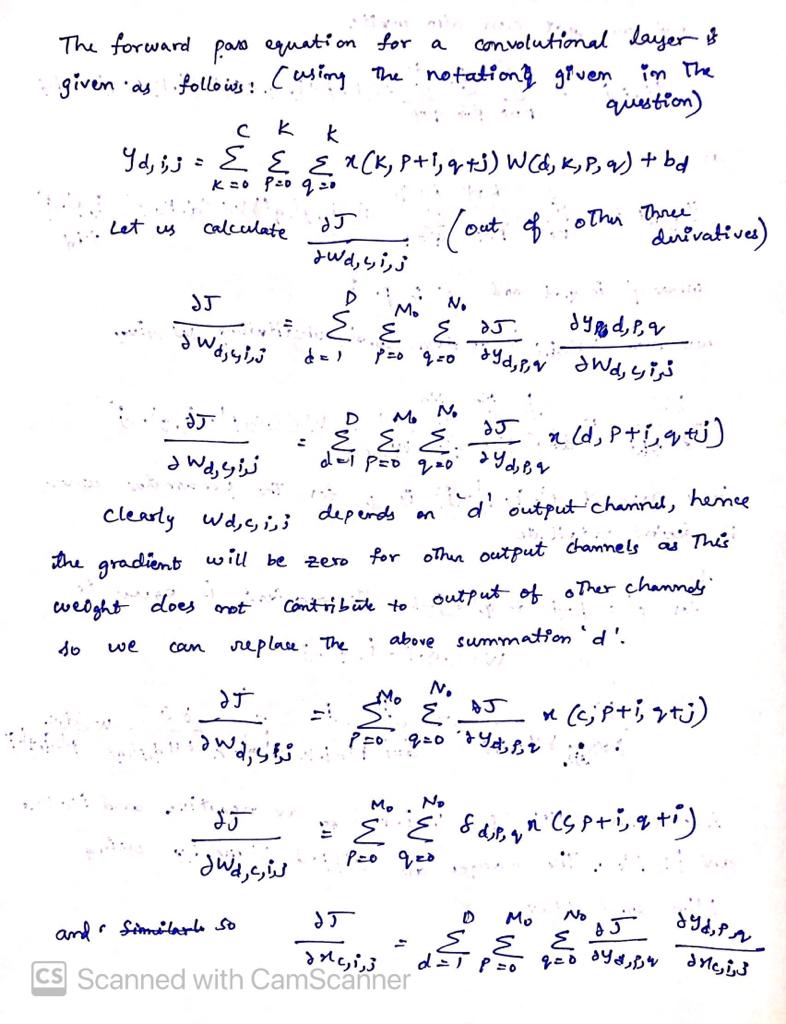 The forward pass equation for a convolutional layer is
given as follows: (using the notations given in the
question)
y_{d,i,j} = Σ_{K=0}^{C} Σ_{P=0}^{K} Σ_{q=0}^{K} x(K, P+i, q+j) W(d, K, P, q) + b_d
Let us calculate ∂J/∂W_{d,c,i,j} (out of other three derivatives)
∂J/∂W_{d,c,i,j} = Σ_{d=1}^{D} Σ_{P=0}^{M_0} Σ_{q=0}^{N_0} ∂J/∂y_{d,P,q} ∂y_{d,P,q}/∂W_{d,c,i,j}
∂J/∂W_{d,c,i,j} = Σ_{d=1}^{D} Σ_{P=0}^{M_0} Σ_{q=0}^{N_0} ∂J/∂y_{d,P,q} x(d, P+i, q+j)
Clearly W_{d,c,i,j} depends on 'd' output channel, hence
the gradient will be zero for other output channels as this
weight does not contribute to output of other channels
so we can replace the above summation 'd'.
∂J/∂W_{d,c,i,j} = Σ_{P=0}^{M_0} Σ_{q=0}^{N_0} ∂J/∂y_{d,P,q} x(c, P+i, q+j)
∂J/∂W_{d,c,i,j} = Σ_{P=0}^{M_0} Σ_{q=0}^{N_0} δ_{d,P,q} x(c, P+i, q+i)
and so ∂J/∂x_{c,i,j} = Σ_{d=1}^{D} Σ_{P=0}^{M_0} Σ_{q=0}^{N_0} ∂J/∂y_{d,P,q} ∂y_{d,P,q}/∂x_{c,i,j}
CS Scanned with CamScanner